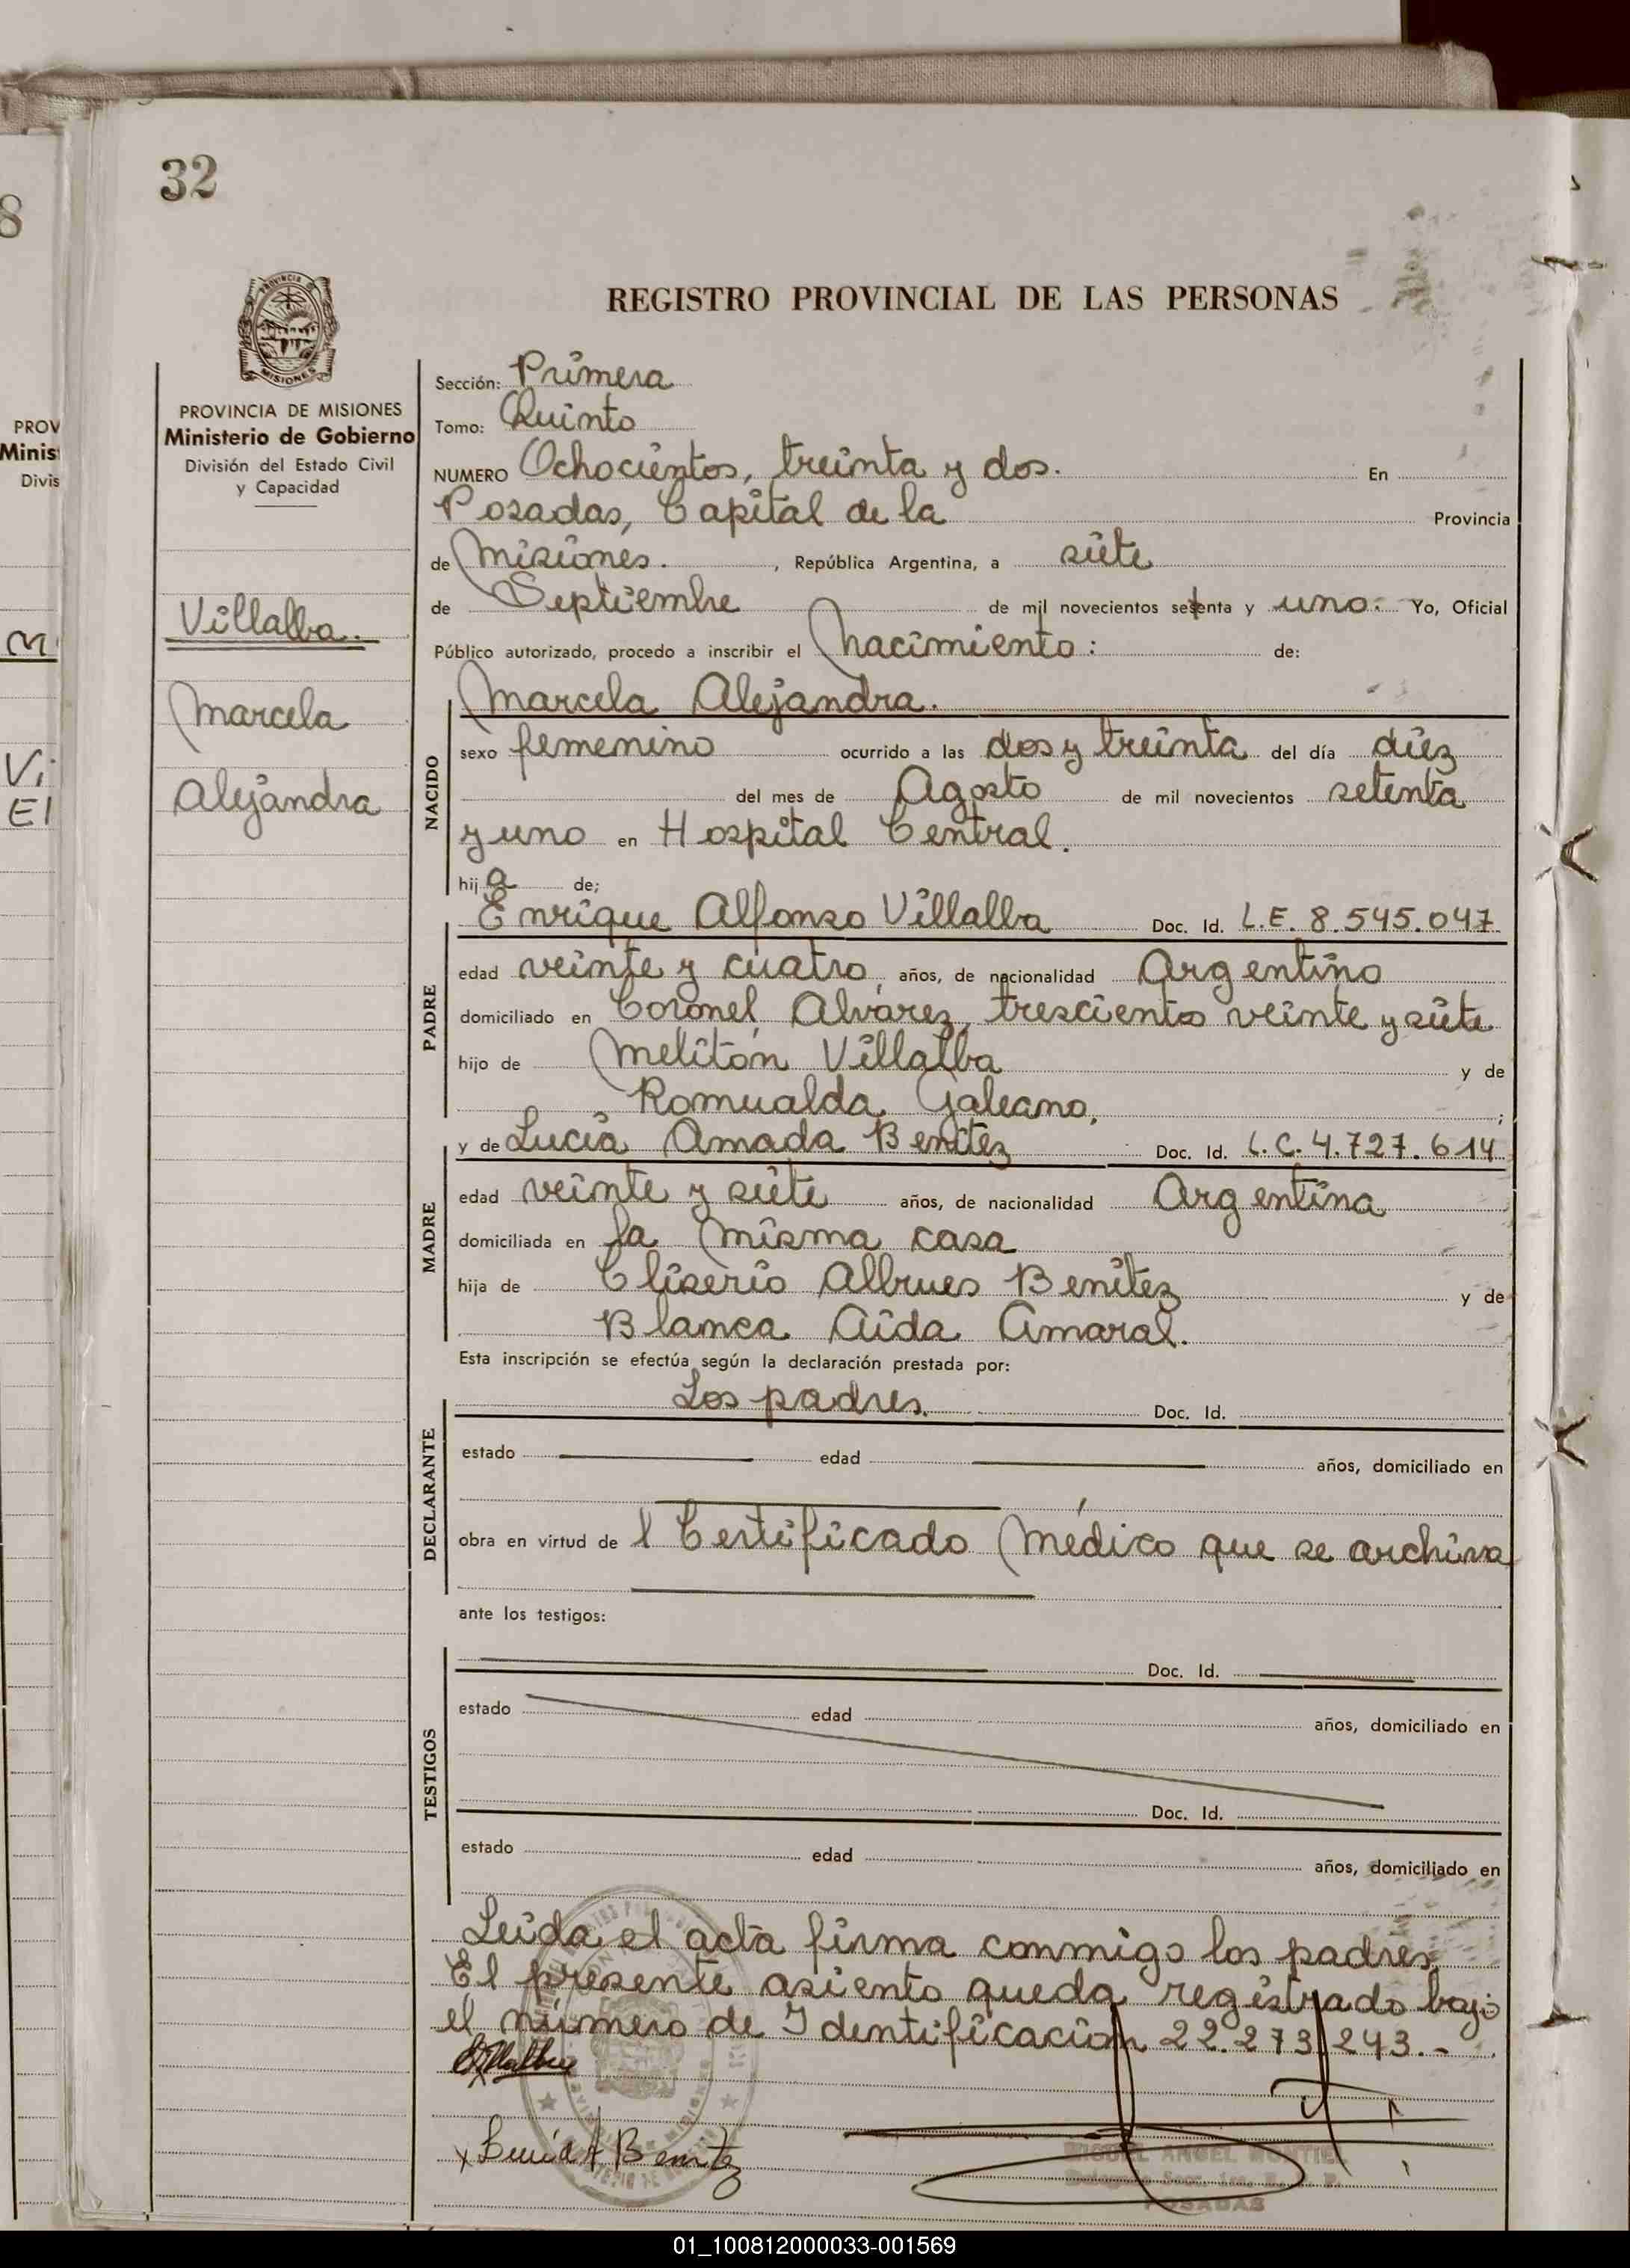 32
8
REGISTRO PROVINCIAL DE LAS PERSONAS
PROVINCIA
MISIONES
PROVINCIA DE MISIONES
Ministerio de Gobierno
División del Estado Civil
y Capacidad
PROV
Minis
Divis
Villalba.
Marcela
Alejandra
Vi
El
Sección: Primera
Tomo: Quinto
NUMERO Ochocientos, treinta y dos. En
Posadas, Capital de la Provincia
de Misiones. , República Argentina, a siete
de Septiembre de mil novecientos setenta y uno. Yo, Oficial
Público autorizado, procedo a inscribir el Nacimiento: de:
Marcela Alejandra.
NACIDO
sexo femenino ocurrido a las dos y treinta del día diez
del mes de Agosto de mil novecientos setenta
y uno en Hospital Central.
hija de;
Enrique Alfonso Villalba Doc. Id. L.E. 8.545.047
PADRE
edad veinte y cuatro, años, de nacionalidad Argentino
domiciliado en Coronel Alvarez, trescientos veinte y siete
hijo de Melitón Villalba y de
Romualda Galeano. ;
y de Lucia Amada Benitez Doc. Id. L.C. 4.727.614
MADRE
edad veinte y siete años, de nacionalidad Argentina
domiciliada en la misma casa
hija de Cliserio Albrues Benitez y de
Blanca Aida Amaral.
Esta inscripción se efectúa según la declaración prestada por:
Los padres. Doc. Id.
DECLARANTE
estado edad años, domiciliado en
obra en virtud de l Certificado Médico que se archiva
ante los testigos:
Doc. Id.
TESTIGOS
estado edad años, domiciliado en
Doc. Id.
estado edad años, domiciliado en
Leida el acta firma conmigo los padres.
El presente asiento queda registrado bajo
el número de Identificación 22.273.243.-
x Lucia A Benitez
MIGUEL ANGEL MONTIEL
POSADAS
01_100812000033-001569